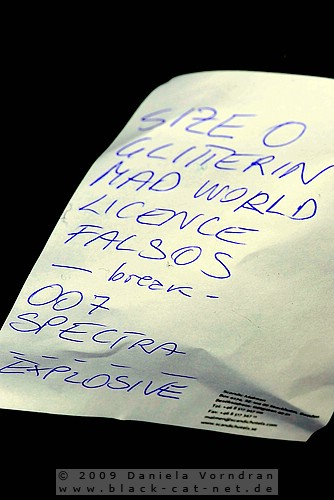 SIZE O
GLITTERIN
MAD WORLD
LICENCE
FALSOS
— break -
007
SPECTRA
— — — — —
EXPLOSIVE
www.scandichotels.se
© 2009 Daniela Vorndran
www.black-cat-net.de